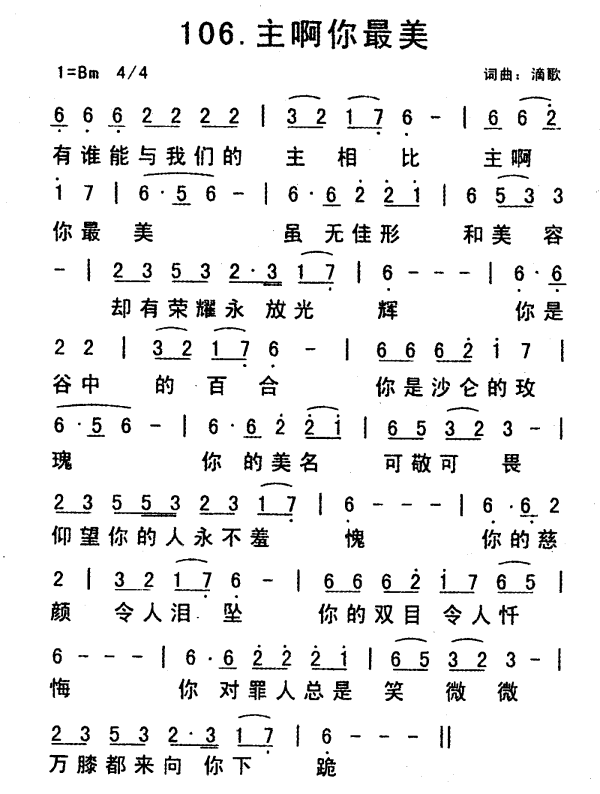 106.主啊你最美
1=Bm 4/4 词曲：滴歌
6 6 6 2 2 2 2 | 3 2 1 7 6 - | 6 6 2
有谁能与我们的 主相比 主啊
1 7 | 6·5 6 - | 6·6 2 2 1 | 6 5 3 3
你最 美 虽 无佳形 和美容
- | 2 3 5 3 2·3 1 7 | 6 - - - | 6·6
却有荣耀永 放光 辉 你是
2 2 | 3 2 1 7 6 - | 6 6 6 2 1 7 |
谷中 的百合 你是沙仑的玫
6·5 6 - | 6·6 2 2 1 | 6 5 3 2 3 - |
瑰 你 的美名 可敬可畏
2 3 5 5 3 2 3 1 7 | 6 - - - | 6·6 2
仰望你的人永不羞 愧 你的慈
2 | 3 2 1 7 6 - | 6 6 6 2 1 7 6 5 |
颜 令人泪 坠 你的双目 令人忏
6 - - - | 6·6 2 2 2 1 | 6 5 3 2 3 -
悔 你 对罪人总是 笑 微微
2 3 5 3 2·3 1 7 | 6 - - - ||
万膝都来向 你下 跪